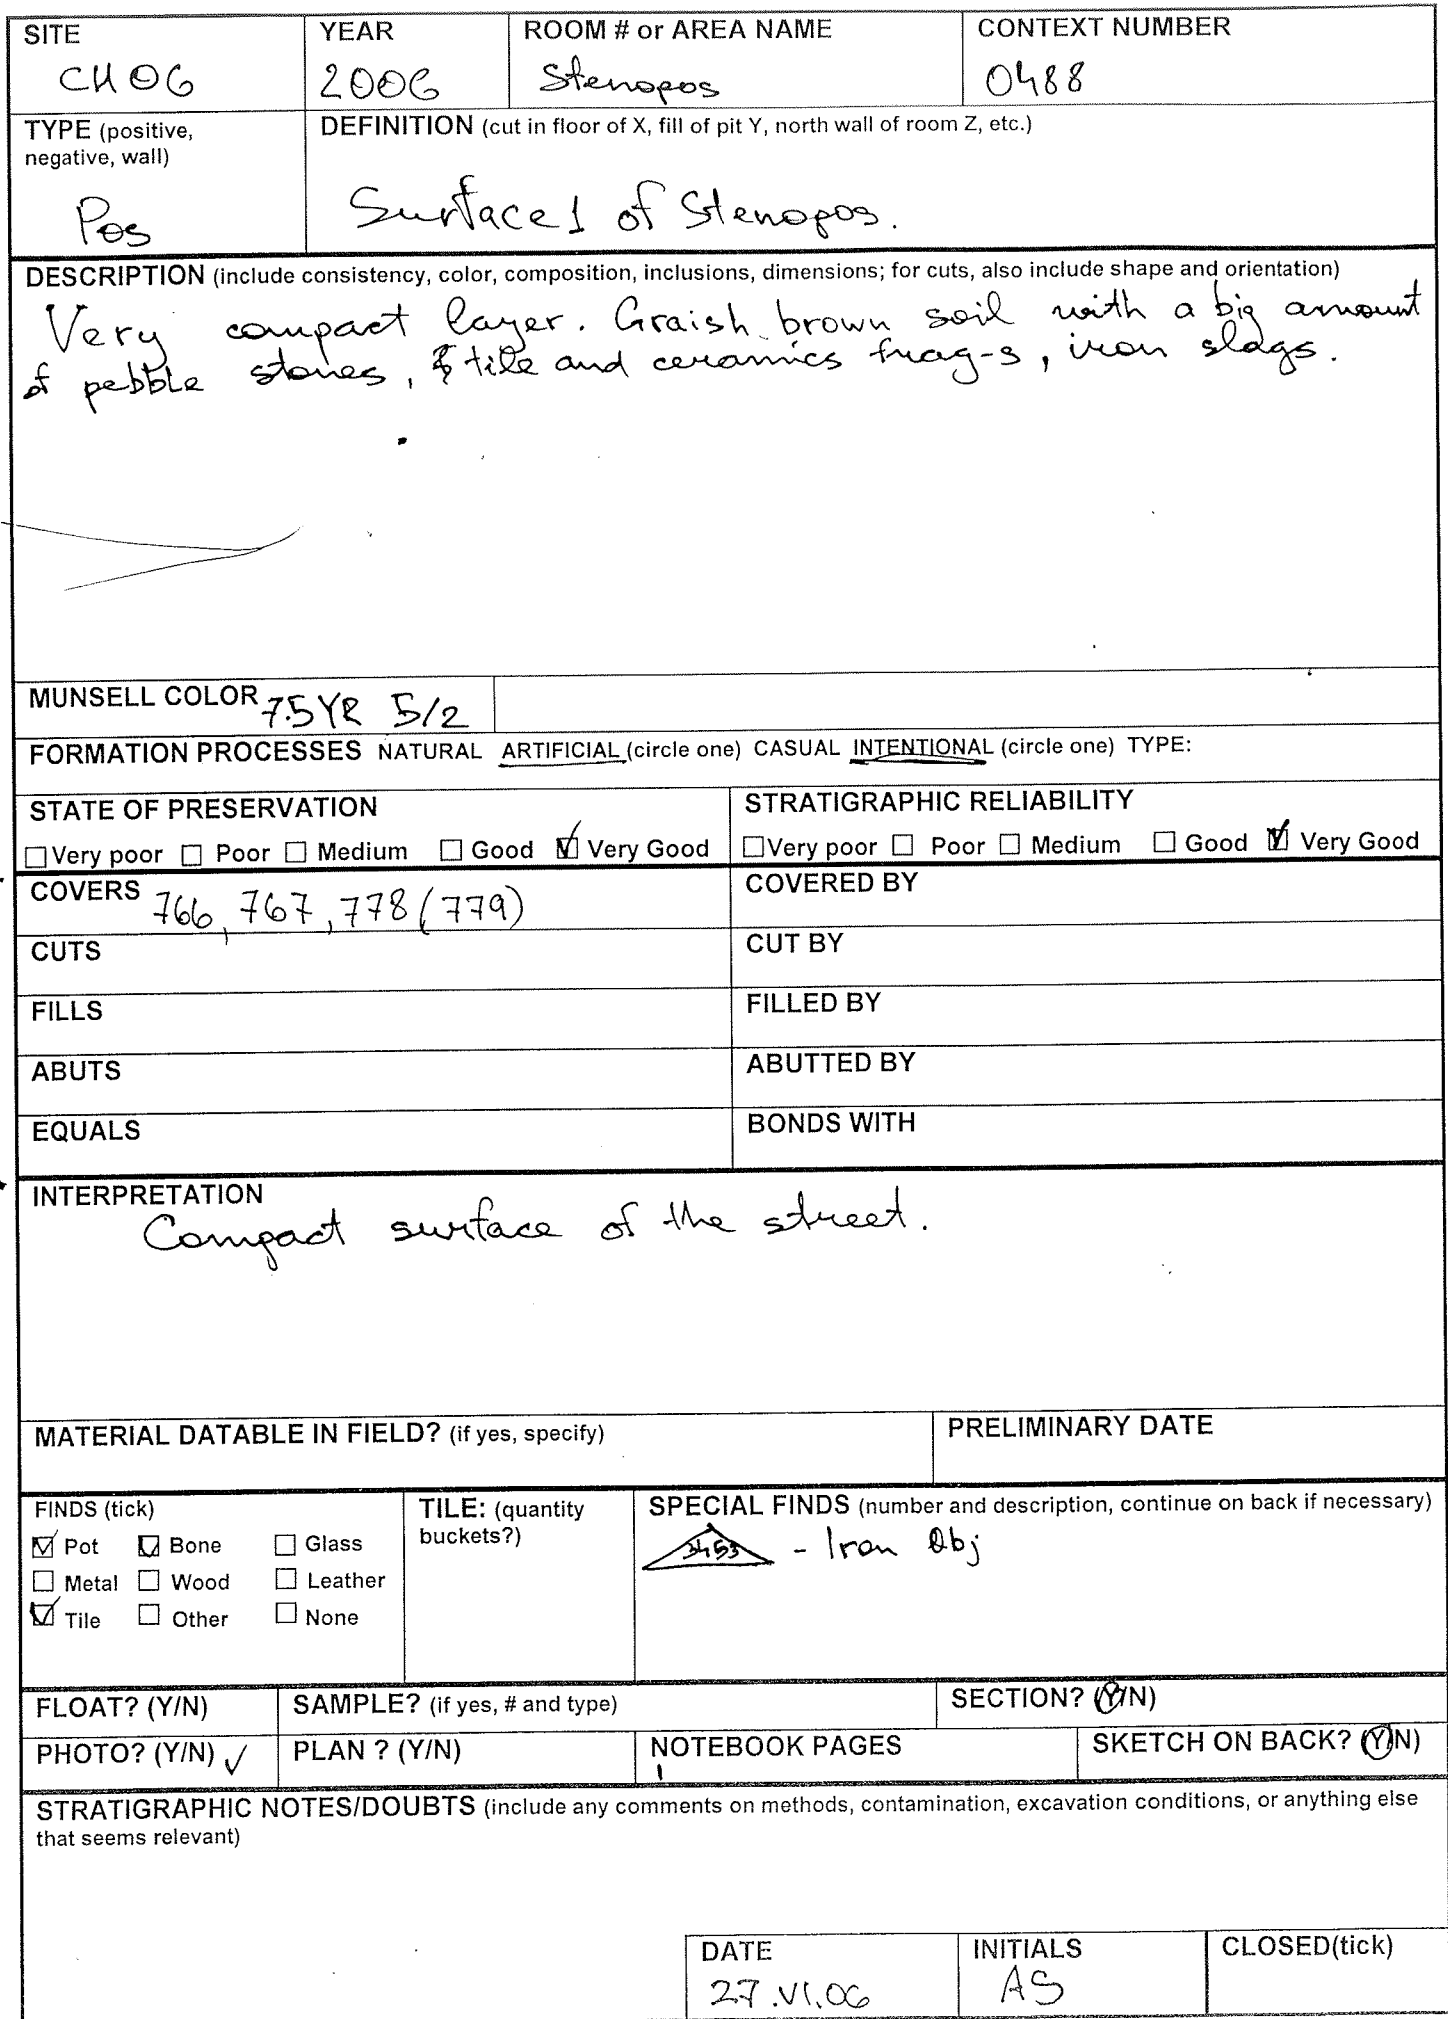 SITE
CH06
YEAR
2006
ROOM # or AREA NAME
Stenopos
CONTEXT NUMBER
0488
TYPE (positive,
negative, wall)
Pos
DEFINITION (cut in floor of X, fill of pit Y, north wall of room Z, etc.)
Surface 1 of Stenopos.
DESCRIPTION (include consistency, color, composition, inclusions, dimensions; for cuts, also include shape and orientation)
Very compact layer. Graish brown soil with a big amount
of pebble stones, tile and ceramics frag-s, iron slags.
MUNSELL COLOR 7.5YR 5/2
FORMATION PROCESSES NATURAL ARTIFICIAL (circle one) CASUAL INTENTIONAL (circle one) TYPE:
STATE OF PRESERVATION
☐ Very poor ☐ Poor ☐ Medium ☐ Good ☑ Very Good
STRATIGRAPHIC RELIABILITY
☐ Very poor ☐ Poor ☐ Medium ☐ Good ☑ Very Good
COVERS 766, 767, 778 (779)
COVERED BY
CUTS
CUT BY
FILLS
FILLED BY
ABUTS
ABUTTED BY
EQUALS
BONDS WITH
INTERPRETATION
Compact surface of the street.
MATERIAL DATABLE IN FIELD? (if yes, specify)
PRELIMINARY DATE
FINDS (tick)
☑ Pot ☑ Bone ☐ Glass
☐ Metal ☐ Wood ☐ Leather
☑ Tile ☐ Other ☐ None
TILE: (quantity
buckets?)
SPECIAL FINDS (number and description, continue on back if necessary)
3453 - Iron Obj
FLOAT? (Y/N)
SAMPLE? (if yes, # and type)
SECTION? (Y/N)
PHOTO? (Y/N) ✓
PLAN ? (Y/N)
NOTEBOOK PAGES
SKETCH ON BACK? (Y/N)
STRATIGRAPHIC NOTES/DOUBTS (include any comments on methods, contamination, excavation conditions, or anything else
that seems relevant)
DATE
27.VI.06
INITIALS
AS
CLOSED(tick)